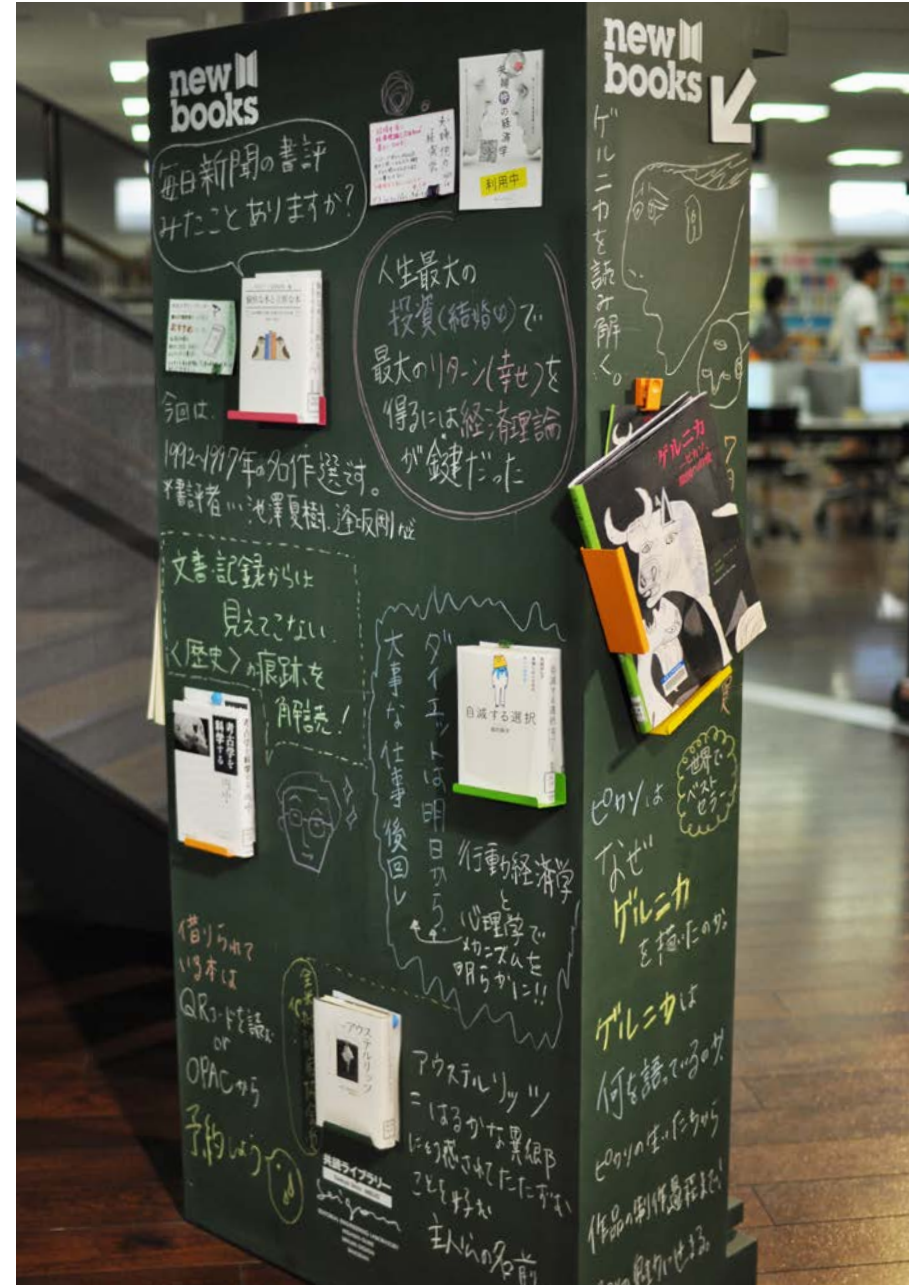 new
books
毎日新聞の書評
みたことありますか?
夫婦仲の経済学
利用中
人生最大の
投資(結婚)で
最大のリターン(幸せ)を
得るには経済理論
が鍵だった
今回は、
1992~1997年の名作選です。
*書評者…池澤夏樹、逢坂剛など
文書記録からは
見えてこない
〈歴史〉の痕跡を
解読!
考古学を
科学する
ダイエットは明日から、
大事な仕事後回し
自滅する選択
行動経済学
と
心理学で
メカニズムを
明らかに!!
借りられて
いる本は
QRコードを読む
or
OPACから
予約しよう
アウステルリッツ
アウステルリッツ
=はるかな異郷
ことを好む
主人公の名前
共読ライブラリー
new
books
ゲルニカを読み解く。
ゲルニカ
世界で
ベスト
セラー
ピカソは
なぜ
ゲルニカ
を描いたのか。
ゲルニカは
何を語っているのか、
ピカソの生いたちから
作品の制作過程まで、